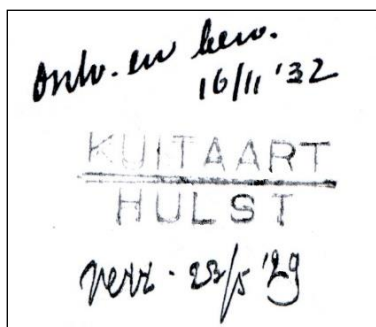 Ontv. en bew.
16/11 '32
KUITAART
HULST
verz. 23/5 '29